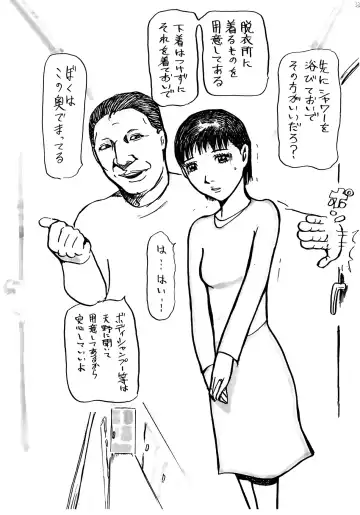 先にシャワーを
浴びておいで
その方がいいだろ?
脱衣所に
着るものを
用意してある
下着はつけずに
それを着ておいで
ぼくは
この奥でまってる
は…はい…!
ボディシャンプー等は
天野に聞いて
用意してあるから
安心していいよ